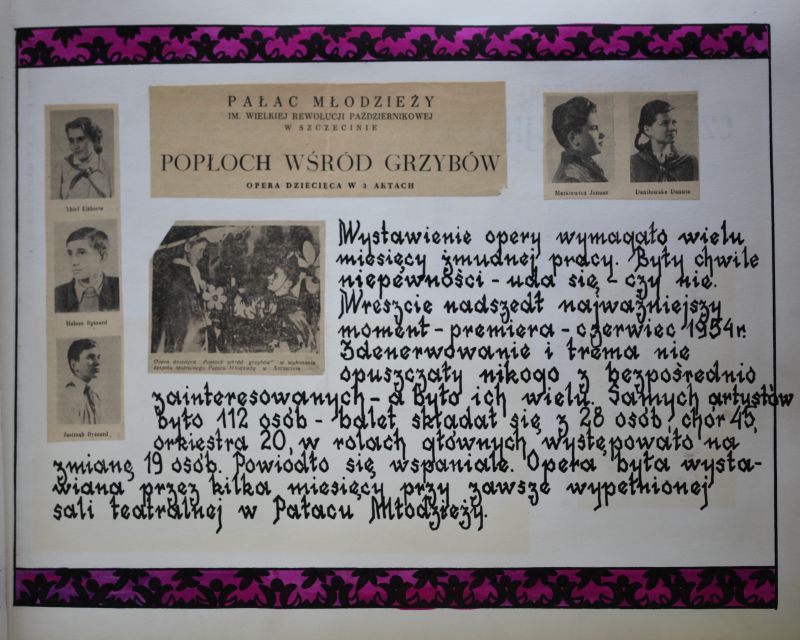 PAŁAC MŁODZIEŻY
IM. WIELKIEJ REWOLUCJI PAŹDZIERNIKOWEJ
W SZCZECINIE
POPŁOCH WŚRÓD GRZYBÓW
OPERA DZIECIĘCA W 3 AKTACH
Markiewicz Janusz
Daniłowska Danuta
Thiel Elżbieta
Halson Ryszard
Jastrząb Ryszard
Opera dziecięca „Popłoch wśród grzybów" w wykonaniu
zespołu teatralnego Pałacu Młodzieży w Szczecinie.
Wystawienie opery wymagało wielu
miesięcy żmudnej pracy. Były chwile
niepewności - uda się - czy nie.
Wreszcie nadszedł najważniejszy
moment - premiera - czerwiec 1954r.
Zdenerwowanie i trema nie
opuszczały nikogo z bezpośrednio
zainteresowanych - a było ich wielu. Samych artystów
było 112 osób - balet składał się z 28 osób, chór 45,
orkiestra 20, w rolach głównych występowało na
zmianę 19 osób. Powiodło się wspaniale. Opera była wysta-
wiana przez kilka miesięcy przy zawsze wypełnionej
sali teatralnej w Pałacu Młodzieży.